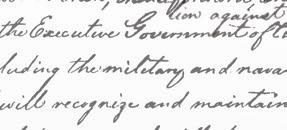 tion against
the Executive Government of
luding the military and nava
will recognize and maintain